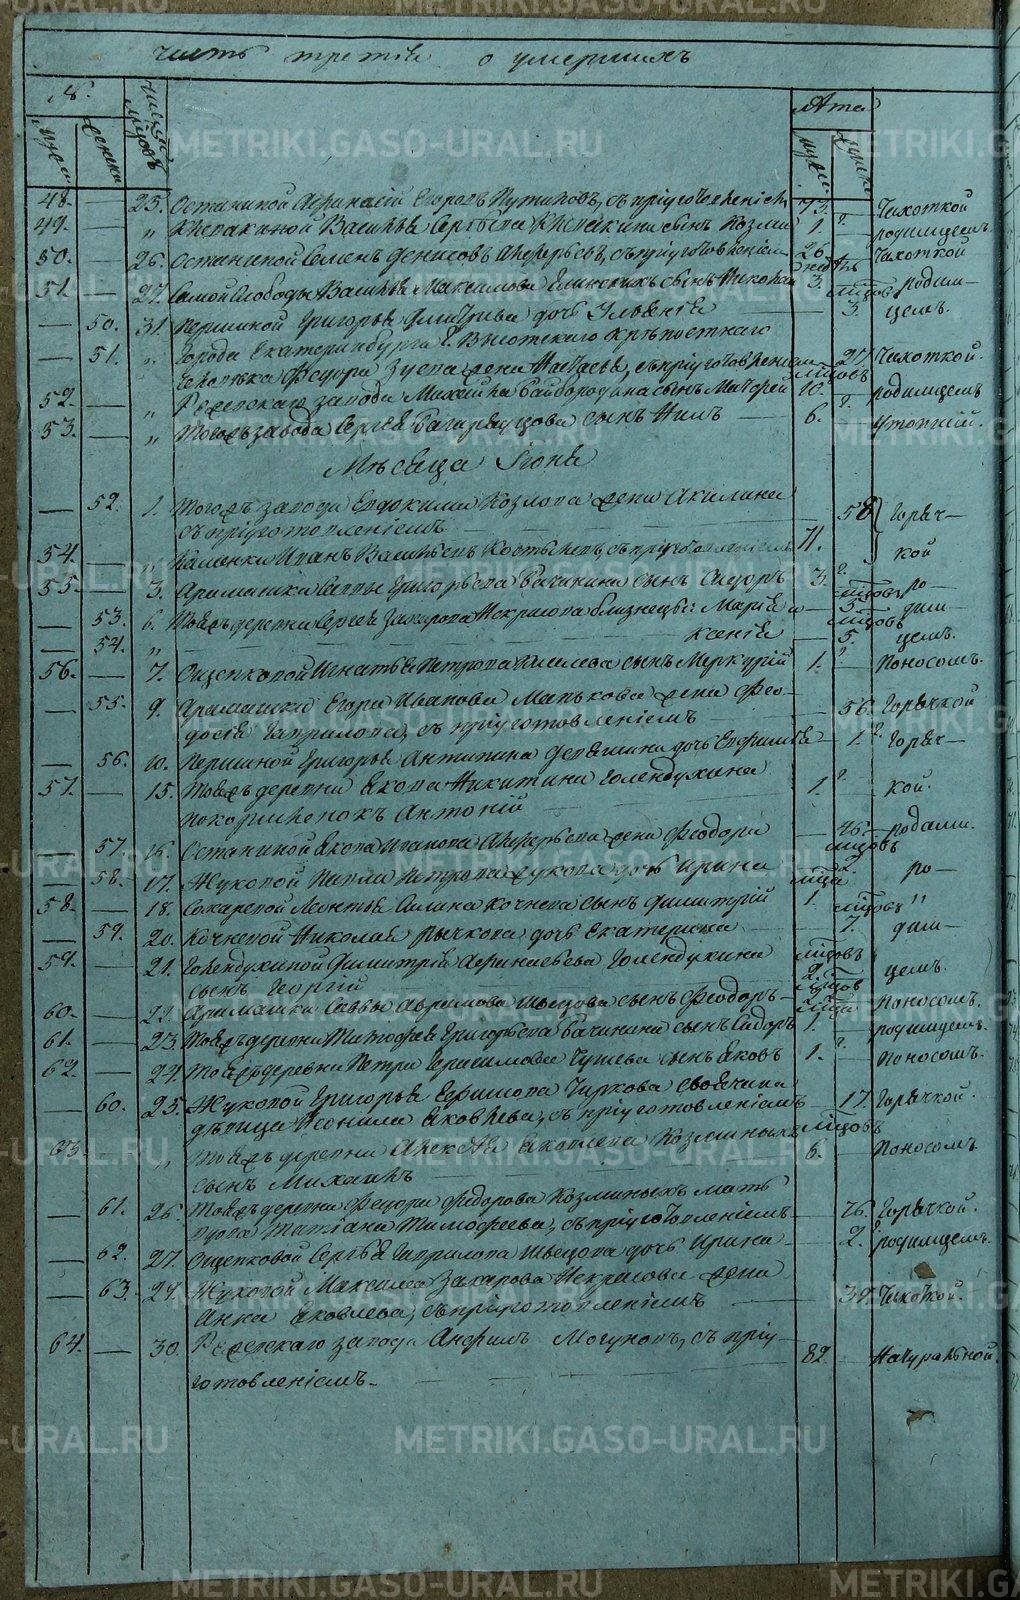 часть третiя о умершихъ
№.
числа мсцовъ
Лета
муж.
женск.
муж.
женск.
48. — 25. Останиной Афанасiй Егоровъ Путиловъ, съ прiуготовленiемъ 73. — Чахоткой
49. — „ Клевакиной Василья Сергѣева Клевакина сынъ Козма 1. — родимцемъ.
50. — 26. Останиной Семенъ Денисовъ Алферьевъ, съ прiуготовленiемъ 26. — Чахоткой
51. — 27. Самой Слободы Василья Максимова сынъ Николай 3. родим-
— 50. 31. Першиной Григорья дочь Ульянiя — 3. цемъ.
— 51. „ Города Екатеринбурга крѣпостнаго
человѣка Федора Зуева жена Наталья, съ прiуготовленiем — 27. Чахоткой.
52. — „ Режевскаго завода Михайла Байбородина сынъ Матфей 10. мсцовъ родимцемъ
53. — „ Тогожъ завода Сергея сынъ Нилъ 6. — Утопшiй.
Мѣсяца Iюня
— 52. 1. Тогожъ завода Евдокима Козлова жена Акилина
съ прiуготовленiемъ — 58 Горяч-
54. — „ Каменки Иванъ Васильевъ Костылевъ, съ прiуготовленiемъ 71. кой
55. — 3. Арамашки Саввы Григорьева Бачинина сынъ Сидоръ 3. мсцовъ ро-
— 53. 6. Тояжъ деревни Сергея Захарова Некрасова близнецы: Марiя и — 5. мсцовъ дим-
— 54. „ Ксенiя — 5. цемъ.
56. — 7. Ощепковой Игнатья Петрова Киселева сынъ Меркурiй 1. — Поносомъ.
— 55. 9. Арамашки Егора Иванова Манькова жена Фео-
досья Гаврилова, съ прiуготовленiемъ — 56. Горячкой
— 56. 10. Першиной Григорья Антипина Девяшина дочь Евфимiя — 1. Горяч-
57. — 15. Тояжъ деревни Якова Никитина Голендухина
покормленокъ Антонiй 1. кой.
— 57. 16. Останиной Якова Иванова Алферьева жена Феодора — 46. родами.
— 58. 17. Жуковой Павла Петрова Жукова дочь Ирина — 2. мсцовъ ро-
58. — 18. Сохаревой Леонтья Савина Кочнева сынъ Димитрiй 1. мсца „
— 59. 20. Кочневой Николая Рычкова дочь Екатерина — 7. мсцовъ дим-
59. — 21. Голендухиной Димитрiя Афанасьева Голендухина
сынъ Георгiй 2. мсцовъ цемъ.
60. — 22. Арамашки Саввы Абрамова Швецова сынъ Феодоръ 2. мсцов Поносомъ.
61. — 23. Тояжъ деревни Тимофея Григорьева Бачинина сынъ Сидоръ 1. мсца родимцемъ.
62. — 24. Тояжъ деревни Петра Герасимова сынъ Яковъ 1. Поносомъ.
— 60. 25. Жуковой Григорья Ефимова Чиркова своячина
дѣвица Неонила Яковлева, съ прiуготовленiемъ — 17. Горячкой.
63 — „ Тояжъ деревни Алексѣя Яковлева Козминыхъ
сынъ Михаилъ 6. мсцовъ — Поносомъ
— 61. 26. Тояжъ деревни Федора Федорова Козминыхъ мать
вдова Татiана Тимофеева, съ прiуготовленiемъ — 76. Горячкой.
— 62. 27. Ощепковой Сергѣя Гаврилова Швецова дочь Ирина — 2. родимцемъ.
— 63. 29. Жуковой Максима Захарова Некрасова жена
Анна Яковлева, съ прiуготовленiемъ — 39. Чахоткой.
64. — 30. Режевскаго завода Анфимъ Могуновъ, съ прiу-
готовленiемъ. — 82. — Натуральной.
METRIKI.GASO-URAL.RU